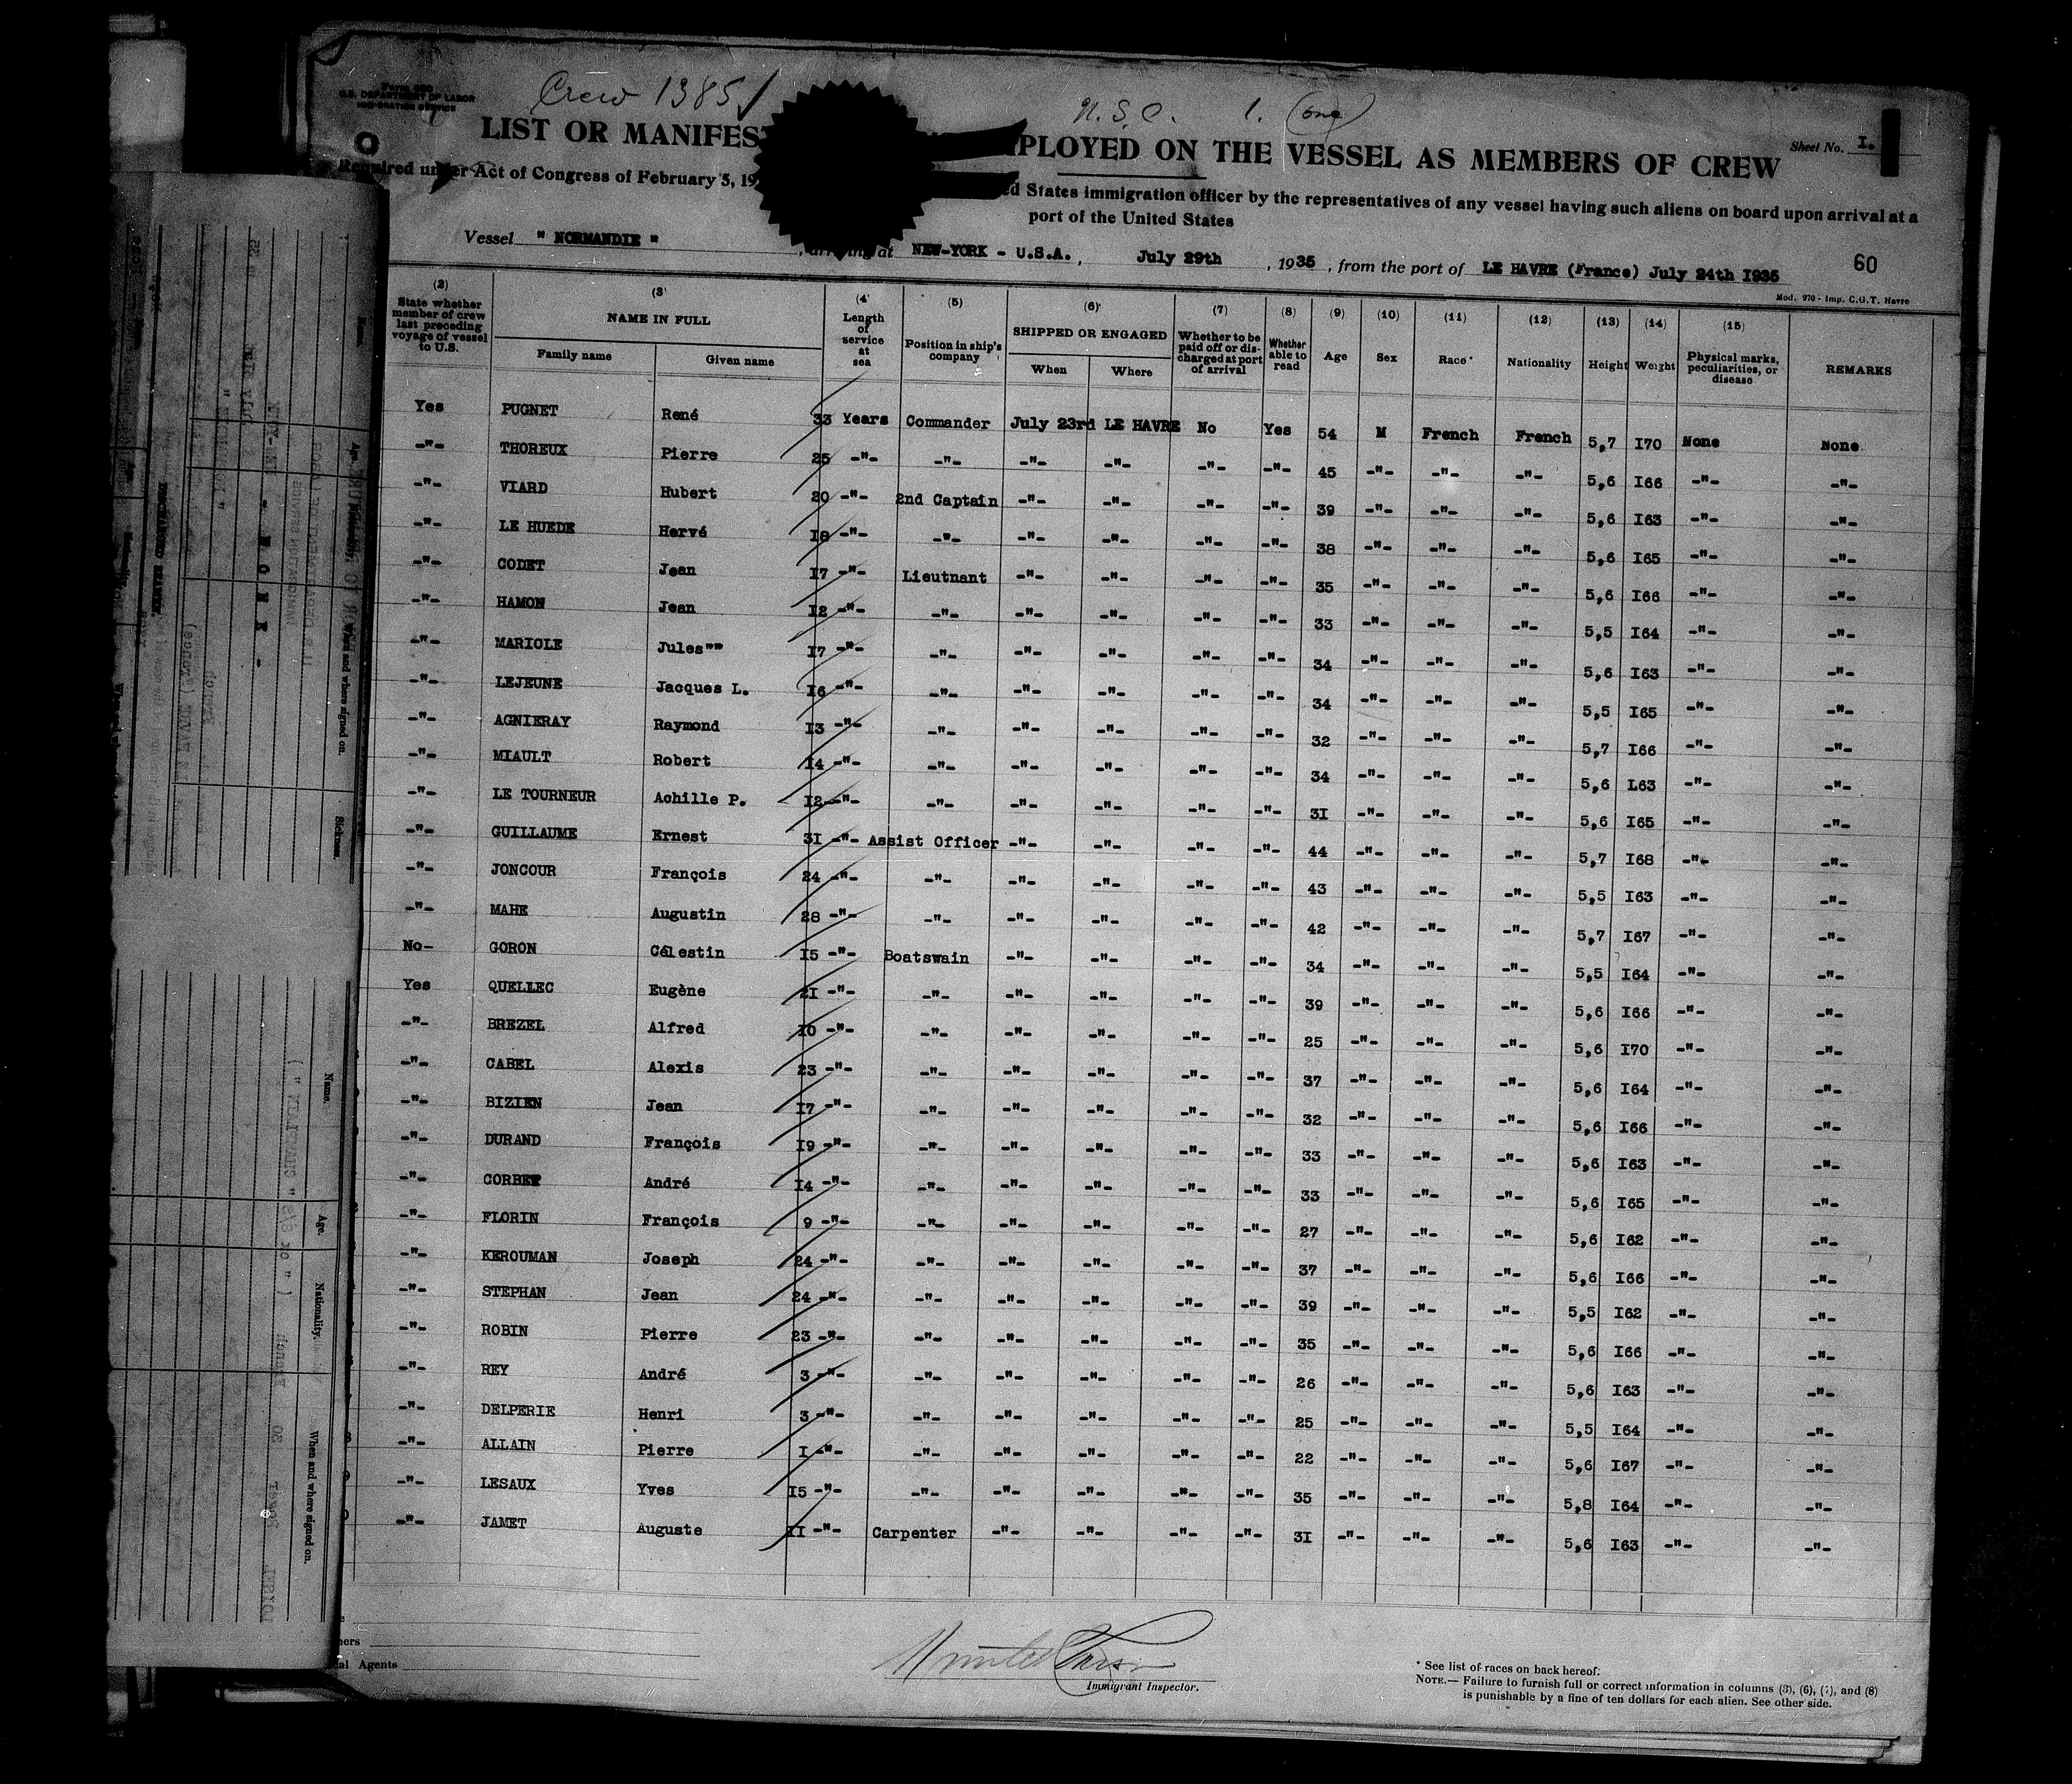 Crew 1385
N.S.C. 1. (one)
Form 680
U.S. DEPARTMENT OF LABOR
IMMIGRATION SERVICE
Sheet No. I.
LIST OR MANIFEST PLOYED ON THE VESSEL AS MEMBERS OF CREW
Required under Act of Congress of February 5, 19 ed States immigration officer by the representatives of any vessel having such aliens on board upon arrival at a
port of the United States
Vessel " NORMANDIE " , arriving at NEW-YORK - U.S.A. , July 29th , 1935 , from the port of LE HAVRE (France) July 24th I935
60
Mod. 970 - Imp. C.G.T. Havre
(2) (3) (4) (5) (6) (7) (8) (9) (10) (11) (12) (13) (14) (15)
State whether member of crew last preceding voyage of vessel to U.S. NAME IN FULL Family name Given name Length of service at sea Position in ship's company SHIPPED OR ENGAGED When Where Whether to be paid off or discharged at port of arrival Whether able to read Age Sex Race* Nationality Height Weight Physical marks, peculiarities, or disease REMARKS
Yes PUGNET René 33 Years Commander July 23rd LE HAVRE No Yes 54 M French French 5,7 I70 None None
-"- THOREUX Pierre 25 -"- -"- -"- -"- -"- -"- 45 -"- -"- -"- 5,6 I66 -"- -"-
-"- VIARD Hubert 20 -"- 2nd Captain -"- -"- -"- -"- 39 -"- -"- -"- 5,6 I63 -"- -"-
-"- LE HUEDE Hervé I8 -"- -"- -"- -"- -"- -"- 38 -"- -"- -"- 5,6 I65 -"- -"-
-"- CODET Jean I7 -"- Lieutnant -"- -"- -"- -"- 35 -"- -"- -"- 5,6 I66 -"- -"-
-"- HAMON Jean I2 -"- -"- -"- -"- -"- -"- 33 -"- -"- -"- 5,5 I64 -"- -"-
-"- MARIOLE Jules"" I7 -"- -"- -"- -"- -"- -"- 34 -"- -"- -"- 5,6 I63 -"- -"-
-"- LEJEUNE Jacques L. I6 -"- -"- -"- -"- -"- -"- 34 -"- -"- -"- 5,5 I65 -"- -"-
-"- AGNIERAY Raymond I3 -"- -"- -"- -"- -"- -"- 32 -"- -"- -"- 5,7 I66 -"- -"-
-"- MIAULT Robert I4 -"- -"- -"- -"- -"- -"- 34 -"- -"- -"- 5,6 L63 -"- -"-
-"- LE TOURNEUR Achille P. I2 -"- -"- -"- -"- -"- -"- 3I -"- -"- -"- 5,6 I65 -"- -"-
-"- GUILLAUME Ernest 3I -"- Assist Officer -"- -"- -"- -"- 44 -"- -"- -"- 5,7 I68 -"- -"-
-"- JONCOUR François 24 -"- -"- -"- -"- -"- -"- 43 -"- -"- -"- 5,5 I63 -"- -"-
-"- MAHE Augustin 28 -"- -"- -"- -"- -"- -"- 42 -"- -"- -"- 5,7 I67 -"- -"-
No- GORON Célestin I5 -"- Boatswain -"- -"- -"- -"- 34 -"- -"- -"- 5,5 I64 -"- -"-
Yes QUELLEC Eugène 2I -"- -"- -"- -"- -"- -"- 39 -"- -"- -"- 5,6 I66 -"- -"-
-"- BREZEL Alfred I0 -"- -"- -"- -"- -"- -"- 25 -"- -"- -"- 5,6 I70 -"- -"-
-"- CABEL Alexis 23 -"- -"- -"- -"- -"- -"- 37 -"- -"- -"- 5,6 I64 -"- -"-
-"- BIZIEN Jean I7 -"- -"- -"- -"- -"- -"- 32 -"- -"- -"- 5,6 I66 -"- -"-
-"- DURAND François I9 -"- -"- -"- -"- -"- -"- 33 -"- -"- -"- 5,6 I63 -"- -"-
-"- CORBET André I4 -"- -"- -"- -"- -"- -"- 33 -"- -"- -"- 5,6 I65 -"- -"-
-"- FLORIN François 9 -"- -"- -"- -"- -"- -"- 27 -"- -"- -"- 5,6 I62 -"- -"-
-"- KEROUMAN Joseph 24 -"- -"- -"- -"- -"- -"- 37 -"- -"- -"- 5,6 I66 -"- -"-
-"- STEPHAN Jean 24 -"- -"- -"- -"- -"- -"- 39 -"- -"- -"- 5,5 I62 -"- -"-
-"- ROBIN Pierre 23 -"- -"- -"- -"- -"- -"- 35 -"- -"- -"- 5,6 I66 -"- -"-
-"- REY André 3 -"- -"- -"- -"- -"- -"- 26 -"- -"- -"- 5,6 I63 -"- -"-
-"- DELPERIE Henri 3 -"- -"- -"- -"- -"- -"- 25 -"- -"- -"- 5,5 I64 -"- -"-
-"- ALLAIN Pierre I -"- -"- -"- -"- -"- -"- 22 -"- -"- -"- 5,6 I67 -"- -"-
-"- LESAUX Yves I5 -"- -"- -"- -"- -"- -"- 35 -"- -"- -"- 5,8 I64 -"- -"-
-"- JAMET Auguste II -"- Carpenter -"- -"- -"- -"- 3I -"- -"- -"- 5,6 I63 -"- -"-
ners
al Agents
Immigrant Inspector.
* See list of races on back hereof.
NOTE.— Failure to furnish full or correct information in columns (3), (6), (7), and (8)
is punishable by a fine of ten dollars for each alien. See other side.